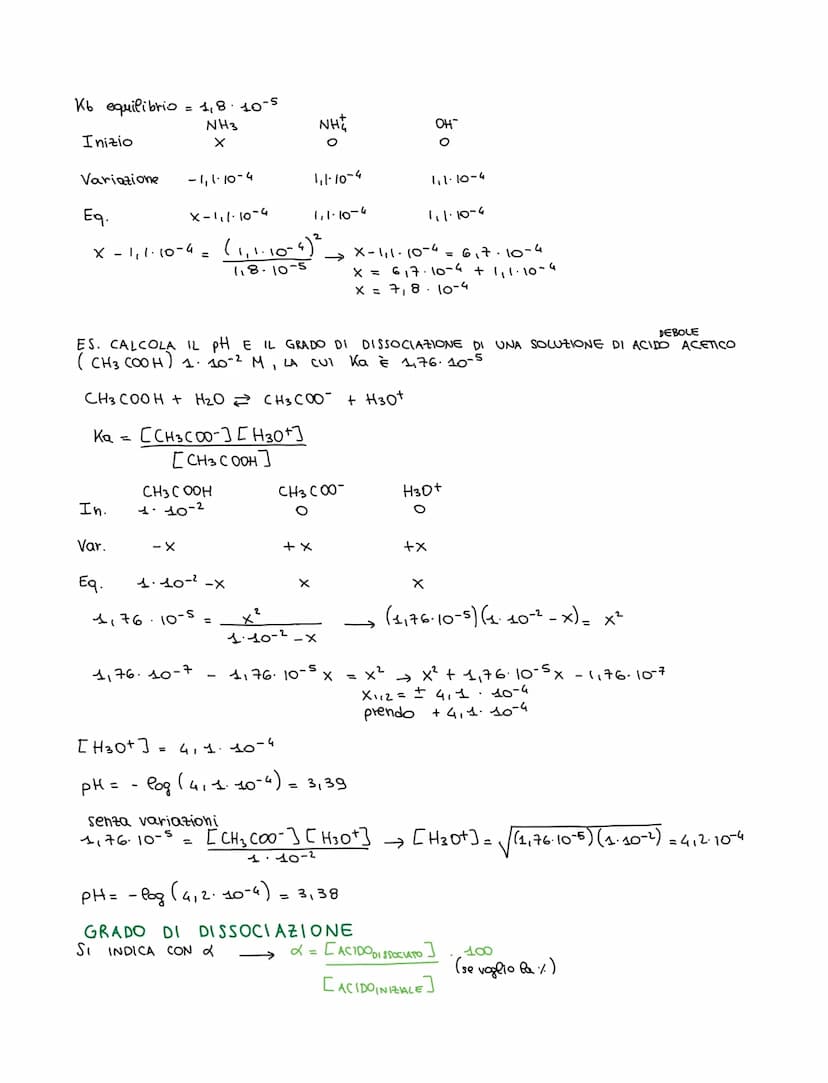 Kb equilibrio = 1,8 · 10⁻⁵
NH3 NH4⁺ OH⁻
Inizio x 0 0
Variazione -1,1·10⁻⁴ 1,1·10⁻⁴ 1,1·10⁻⁴
Eq. x-1,1·10⁻⁴ 1,1·10⁻⁴ 1,1·10⁻⁴
x - 1,1·10⁻⁴ = (1,1·10⁻⁴)² / 1,8·10⁻⁵ → x-1,1·10⁻⁴ = 6,7·10⁻⁴
x = 6,7·10⁻⁴ + 1,1·10⁻⁴
x = 7,8·10⁻⁴
DEBOLE
ES. CALCOLA IL pH E IL GRADO DI DISSOCIAZIONE DI UNA SOLUZIONE DI ACIDO ACETICO
(CH3COOH) 1·10⁻² M, LA CUI Ka È 1,76·10⁻⁵
CH3COOH + H2O ⇄ CH3COO⁻ + H3O⁺
Ka = [CH3COO⁻][H3O⁺]
[CH3COOH]
CH3COOH CH3COO⁻ H3O⁺
In. 1·10⁻² 0 0
Var. -x +x +x
Eq. 1·10⁻²-x x x
1,76·10⁻⁵ = x² / 1·10⁻²-x → (1,76·10⁻⁵)(1·10⁻²-x) = x²
1,76·10⁻⁷ - 1,76·10⁻⁵x = x² → x² + 1,76·10⁻⁵x - 1,76·10⁻⁷
x1,2 = ± 4,1·10⁻⁴
prendo + 4,1·10⁻⁴
[H3O⁺] = 4,1·10⁻⁴
pH = - log(4,1·10⁻⁴) = 3,39
senza variazioni
1,76·10⁻⁵ = [CH3COO⁻][H3O⁺] / 1·10⁻² → [H3O⁺] = √(1,76·10⁻⁵)(1·10⁻²) = 4,2·10⁻⁴
pH = - log(4,2·10⁻⁴) = 3,38
GRADO DI DISSOCIAZIONE
SI INDICA CON α → α = [ACIDO DISSOCIATO] · 100
(se voglio la %)
[ACIDO INIZIALE]